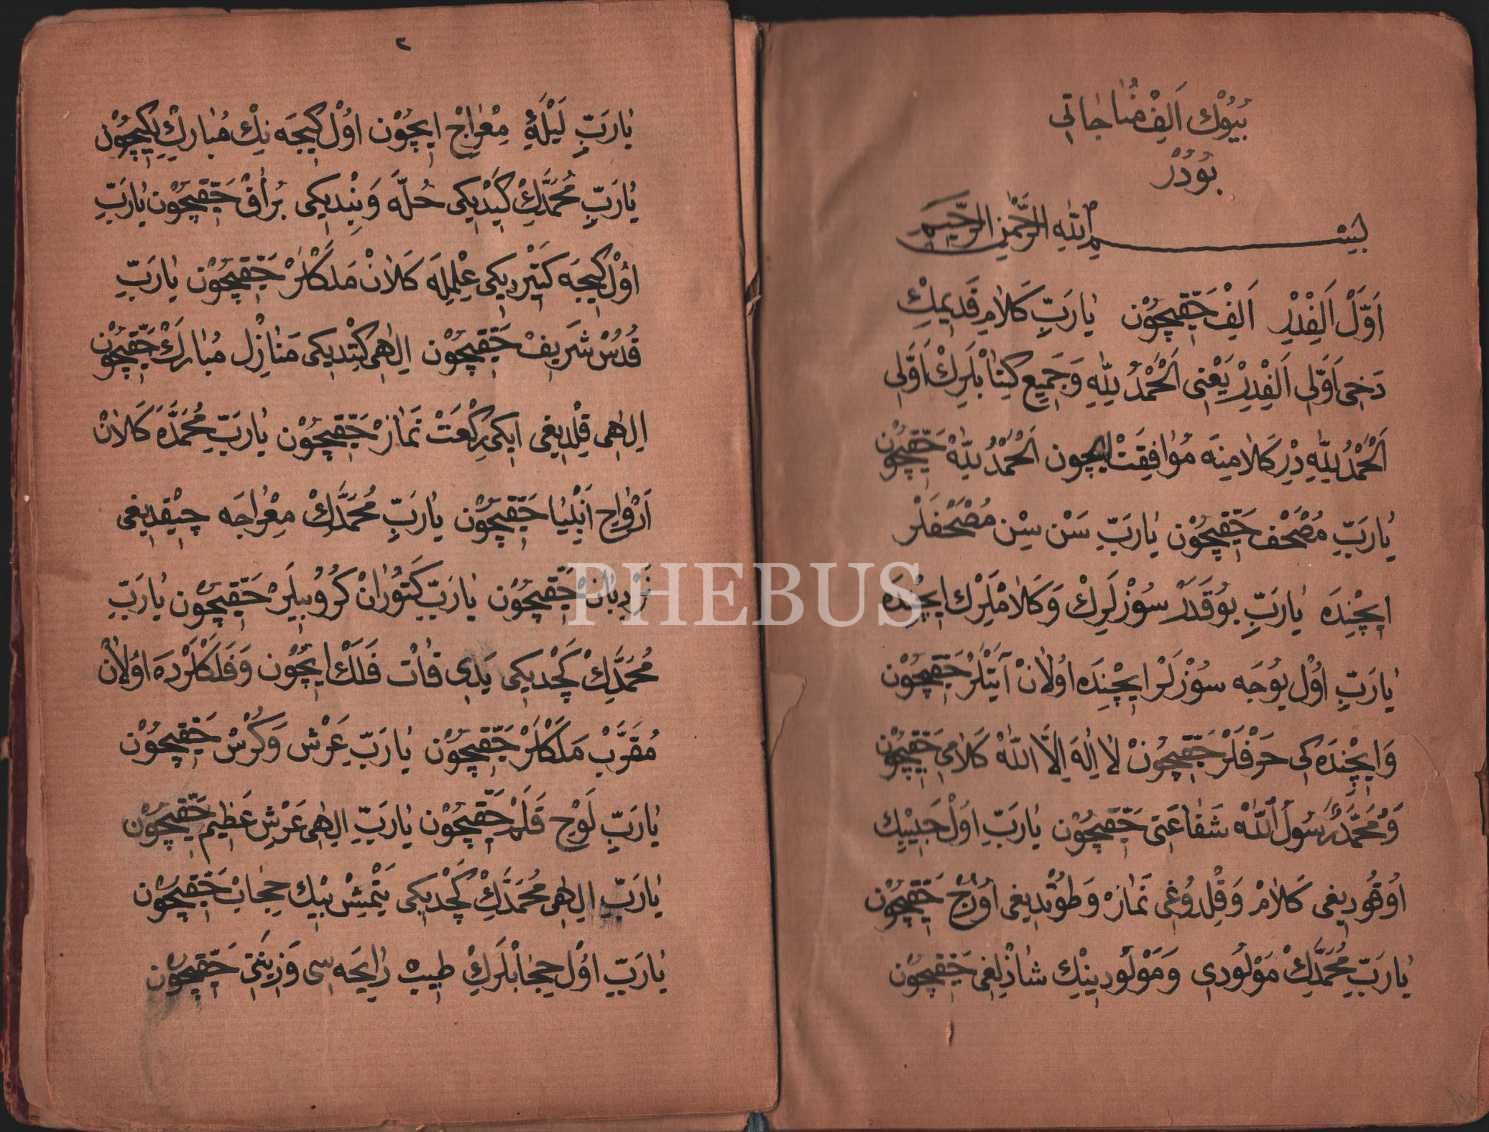 بُيُوْك اَلِفْ مُنٰاجٰاتِي
بُودُرْ
بِسْمِ اللّٰهِ الرَّحْمٰنِ الرَّحِيمِ
اَوَّلْ اَلِفْدِرْ اَلِفْ حَقِّيچُوْن يٰارَبِّ كَلٰامِ قَدِيمِكْ
دَخِى اَوَّلِى اَلِفْدِرْ يَعْنِى اَلْحَمْدُ لِلّٰهِ وَجَمِيعِ كِتَابْلَرِكْ اَوَّلِى
اَلْحَمْدُ لِلّٰهِ دِرْ كَلٰامِنَه مُوٰافِقَتْ اِيچُون اَلْحَمْدُ لِلّٰهْ حَقِّيچُوْن
يٰارَبِّ مُصْحَفْ حَقِّيچُوْن يٰارَبِّ سَنْ سِنْ مُصْحَفْلَرْ
اِيچِنْدَه يٰارَبِّ بُوقَدَرْ سُوْزْلَرِكْ وَكَلٰامْلَرِكْ اِيچِنْدَه
يٰارَبِّ اُوْل يُوجَه سُوْزْلَرْ اِيچِنْدَه اُولٰانْ آيَتْلَرْ حَقِّيچُوْن
وَاِيچِنْدَه كِى حَرْفْلَرْ حَقِّيچُوْن لٰا اِلٰهَ اِلَّا اللّٰهْ كَلٰامِى حَقِّيچُوْن
وَمُحَمَّدٌ رَسُولُ اللّٰهْ شَفٰاعَتِى حَقِّيچُوْن يٰارَبِّ اُولْ حَبِيبِكْ
اُوقُودِيغِى كَلٰامْ وَقِلْدُوغِى نَمٰازْ وَطُوْتدِيغِى اُورُجْ حَقِّيچُوْن
يٰارَبِّ مُحَمَّدِكْ مَوْلُودِى وَمَوْلُودِينِكْ شٰاذْلِغِى حَقِّيچُوْن
٢
يٰارَبِّ لَيْلَةِ مِعْرٰاجْ اِيچُوْن اُوْل كِيجَه نِكْ مُبٰارَكْلِكِيچُوْن
يٰارَبِّ مُحَمَّدِكْ كَيْدِيكِى حُلَّه وَبِنْدِيكِى بُرٰاقْ حَقِّيچُوْن يٰارَبِّ
اُوْل كِيجَه كَتِيرْدِيكِى عِلْمِلَه كَلٰانْ مَلَكْلَرْ حَقِّيچُوْن يٰارَبِّ
قُدُسْ شَرِيفْ حَقِّيچُوْن اِلٰهِى كِتْدِيكِى مَنٰازِلِ مُبٰارَكْ حَقِّيچُوْن
اِلٰهِى قِلْدِيغِى اِيكِى رِكْعَتْ نَمٰازْ حَقِّيچُوْن يٰارَبِّ مُحَمَّدَه كَلٰانْ
اَرْوٰاحِ اَنْبِيٰا حَقِّيچُوْن يٰارَبِّ مُحَمَّدِكْ مِعْرٰاجَه چِيْقْدِيغِى
نَرْدِبٰانْ حَقِّيچُوْن يٰارَبِّ كَتُورَانْ كَرُوبِيلَرْ حَقِّيچُوْن يٰارَبِّ
مُحَمَّدِكْ كَچْدِيكِى يَدِى قٰاتْ فَلَكْ اِيچُوْن وَفَلَكْلَرْدَه اُولٰانْ
مُقَرَّبْ مَلَكْلَرْ حَقِّيچُوْن يٰارَبِّ عَرْش وَكُرْسْ حَقِّيچُوْن
يٰارَبِّ لَوْحِ قَلَمْ حَقِّيچُوْن يٰارَبِّ اِلٰهِى عَرْشِ عَظِيمْ حَقِّيچُوْن
يٰارَبِّ اِلٰهِى مُحَمَّدِكْ كَچْدِيكِى يَتْمِشْ بِيْك حِجٰابْ حَقِّيچُوْن
يٰارَبِّ اُوْل حِجٰابْلَرِكْ طِيبْ رٰايِحَه سِى وَزِينَتِى حَقِّيچُوْن
PHEBUS